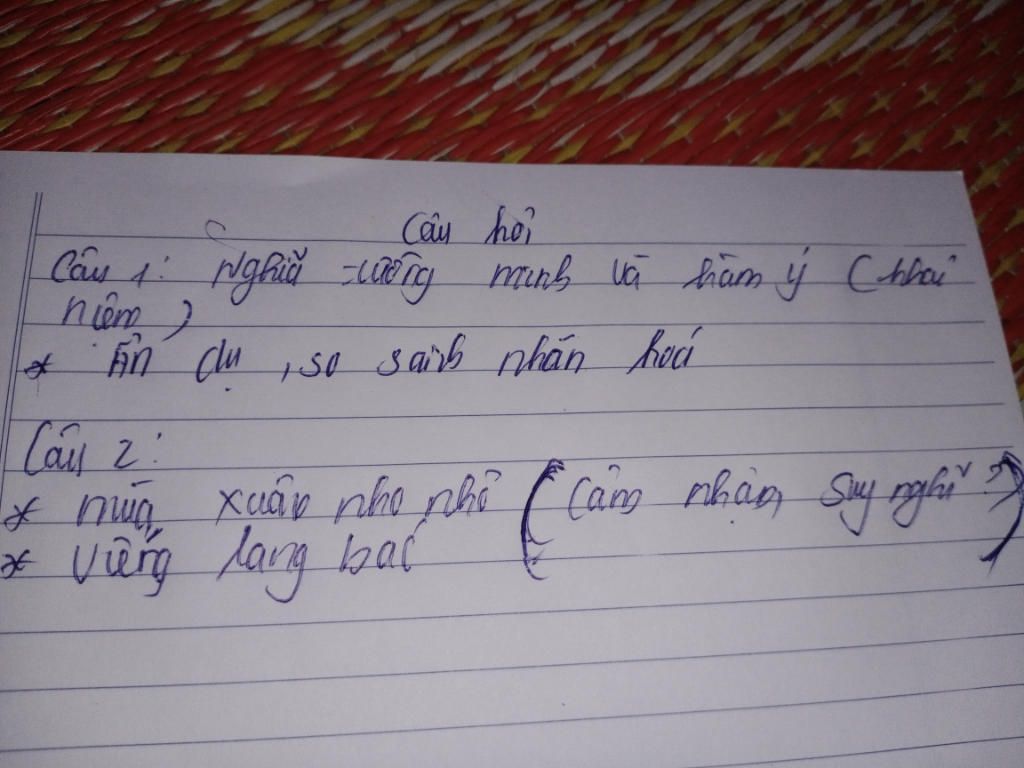 Câu hỏi
Câu 1: Nghĩa tường minh và hàm ý (khái
niệm)
* Ẩn dụ, so sánh nhân hoá
Câu 2:
* mùa xuân nho nhỏ (Cảm nhận, suy nghĩ?)
* Viếng lăng bác